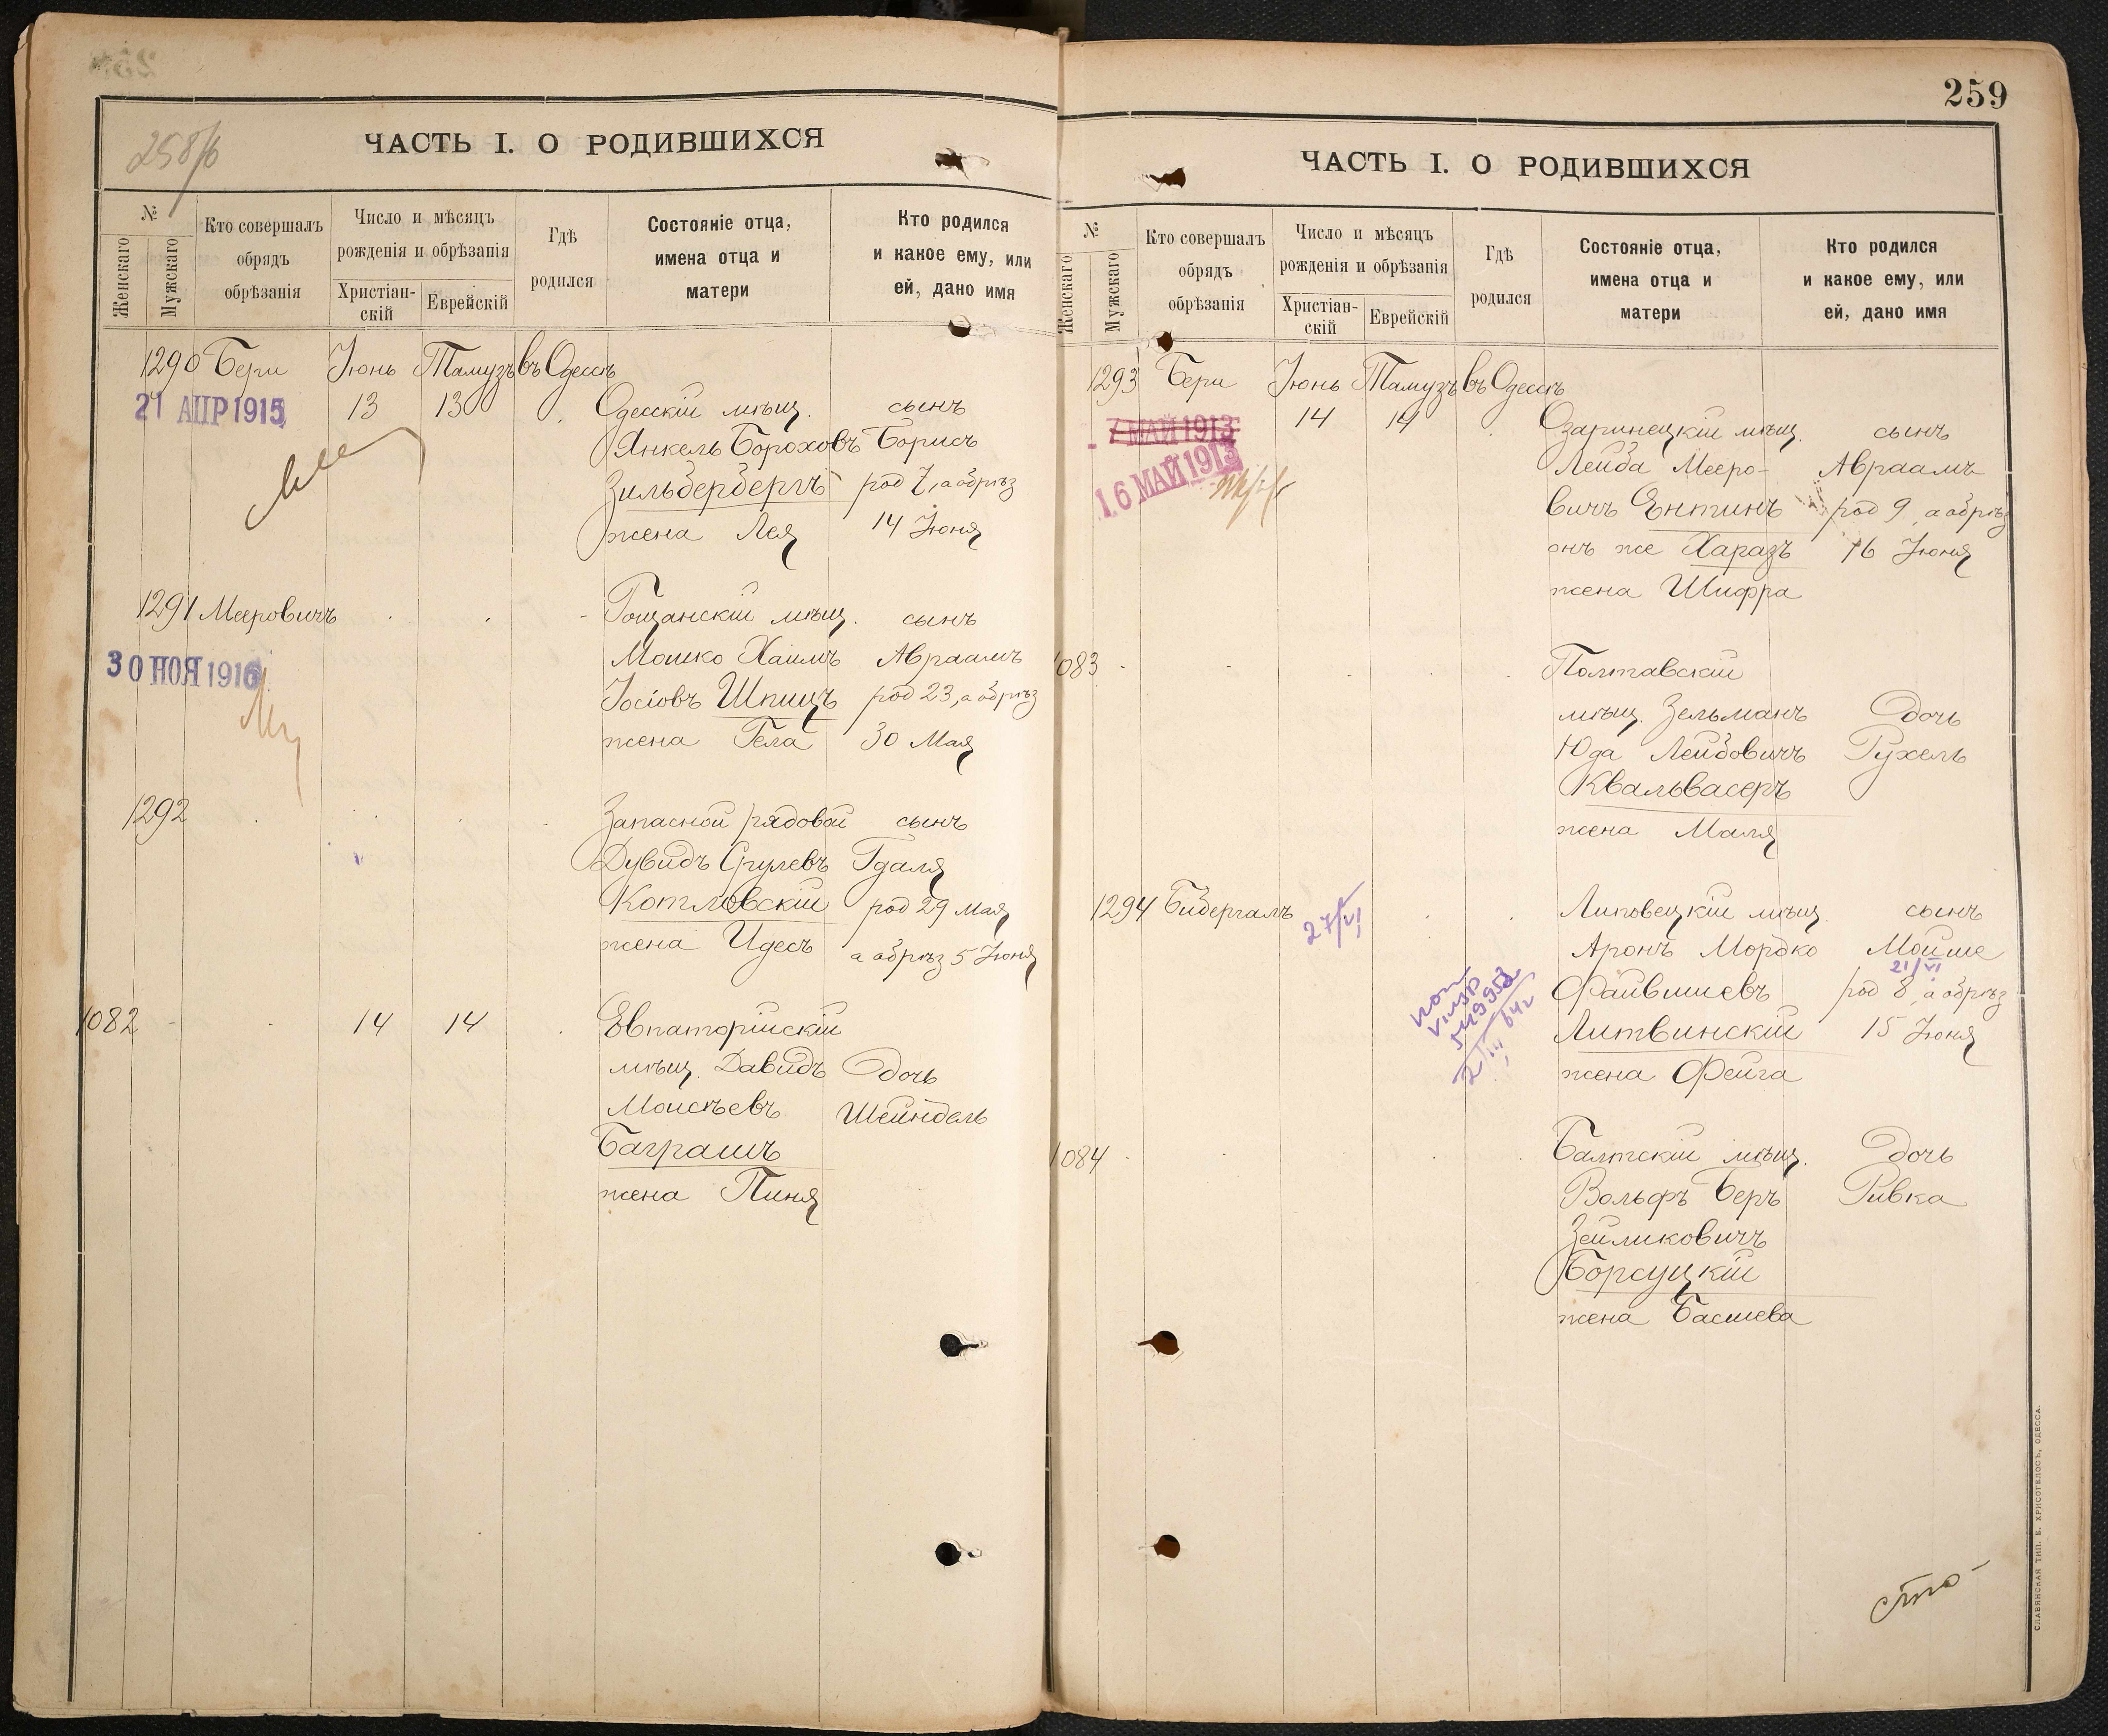 258/б
ЧАСТЬ I. О РОДИВШИХСЯ
№
Женскаго
Мужскаго
Кто совершалъ
обрядъ
обрѣзанія
Число и мѣсяцъ
рожденія и обрѣзанія
Христіан-
скій
Еврейскій
Гдѣ
родился
Состояніе отца,
имена отца и
матери
Кто родился
и какое ему, или
ей, дано имя
1290 Бери Іюнь Тамузъ въ Одессѣ
21 АПР 1915 13 13 Одесскій мѣщ. сынъ
Янкель Бороховъ Борисъ
Зильберберг род 7, а обрѣз
жена Лея 14 Іюня
1291 Мееровичъ Гощанскій мѣщ. сынъ
Мошко Хаимъ Авраамъ
30 НОЯ 1916
Іосіовъ Шпицъ род 23, а обрѣз
жена Гела 30 Мая
1292 Запасной рядовой сынъ
Дувидъ Срулевъ Гдаля
Котловскій род 29 Мая
жена Идесъ а обрѣз 5 Іюня
1082 14 14 Евпаторійскій
мѣщ. Давидъ Дочь
Моисѣевъ Шейндель
Баграшъ
жена Пиня
259
ЧАСТЬ I. О РОДИВШИХСЯ
№
Женскаго
Мужскаго
Кто совершалъ
обрядъ
обрѣзанія
Число и мѣсяцъ
рожденія и обрѣзанія
Христіан-
скій
Еврейскій
Гдѣ
родился
Состояніе отца,
имена отца и
матери
Кто родился
и какое ему, или
ей, дано имя
1293 Бери Іюнь Тамузъ въ Одессѣ
7 МАЙ 1913 14 14 Озаринецкій мѣщ. сынъ
16 МАЙ 1913 Лейба Мееро- Авраамъ
вичъ Ентинъ род 9, а обрѣз
онъ же Харазъ 16 Іюня
жена Шифра
1083 Полтавскій
мѣщ. Зельманъ Дочь
Юда Лейбовичъ Рухель
Квальвасеръ
жена Маля
1294 Бибергалъ 27/VI Липовецкій мѣщ. сынъ
Аронъ Мордко Мойше
21/VI
Файвишевъ род 8, а обрѣз
Литвинскій 15 Іюня
жена Фейга
1084 Балтскій мѣщ. Дочь
Вольфъ Беръ Ривка
Зейликовичъ
Борсуцкій
жена Басшева
сто
СЛАВЯНСКАЯ ТИП. Е. ХРИСОГЕЛОСЪ, ОДЕССА.